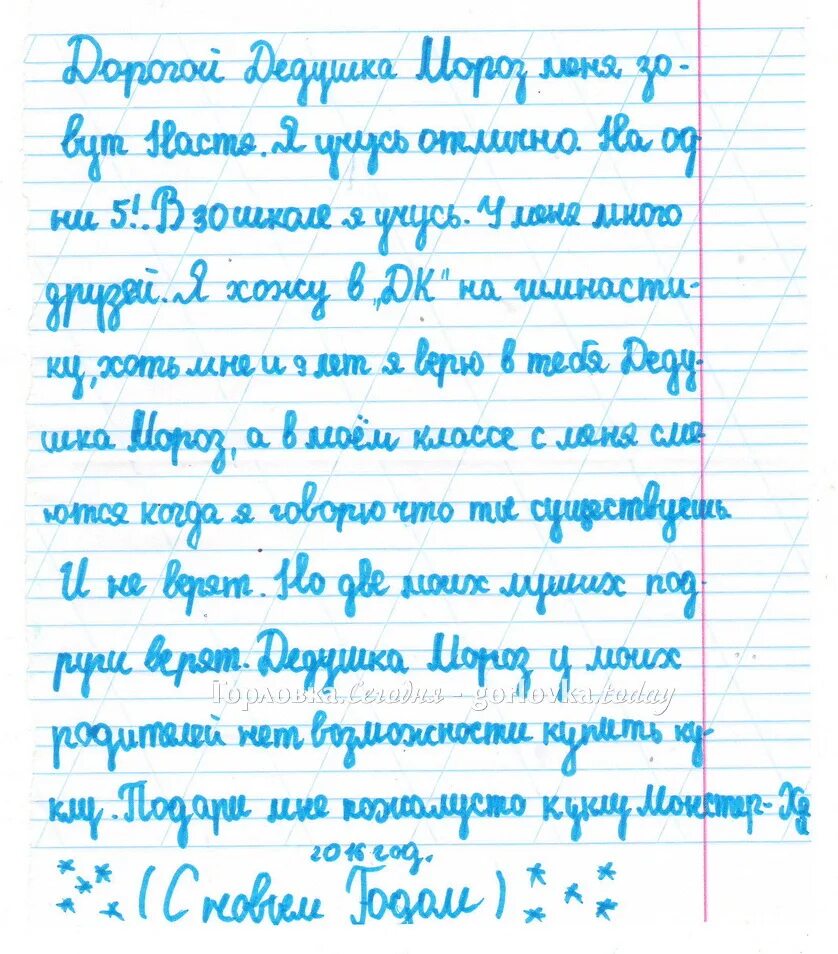 Дорогой Дедушка Мороз меня зо-
вут Настя. Я учусь отлично. На од
ни 5!. В 30 школе я учусь. У меня много
друзей. Я хожу в „ДК" на гимнасти-
ку, хоть мне и 9 лет я верю в тебя Деду-
шка Мороз, а в моём классе с меня сме
ются когда я говорю что ты существуешь
И не верят. Но две моих лучших под-
руги верят. Дедушка Мороз у моих
Горловка.Сегодня - gorlovka.today
родителей нет возможности купить ку-
клу. Подари мне пожалусто куклу Монстер-Ха
2016 год.
(С новым Годом)